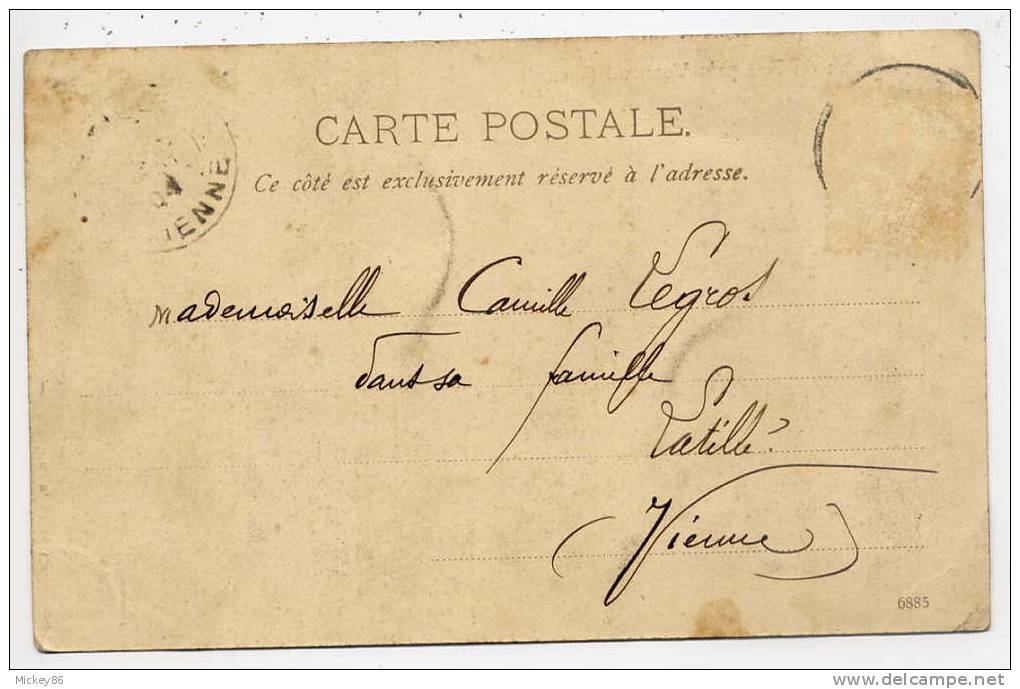 CARTE POSTALE.
Ce côté est exclusivement réservé à l'adresse.
IENNE
Mademoiselle Camille Legros
dans sa famille
Latillé
(Vienne)
6885
Mickey86
www.delcampe.net